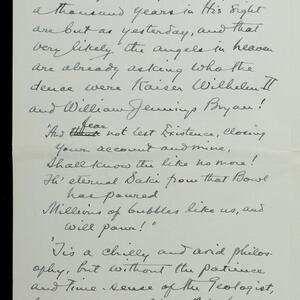 a thousand years in His sight
are but as yesterday, and that
very likely the angels in heaven
are already asking who the
dence were Kaiser Wilhelm II
and William Jennings Bryan!
"And fear not lest Existence, closing
your account and mine,
Shall know the like no more!
Th' eternal Saki from that Bowl
has poured
Millions of bubbles like us, and
will pour!"
'Tis a chilly and arid philos-
ophy, but without the patience
and time-sense of the Geologist,